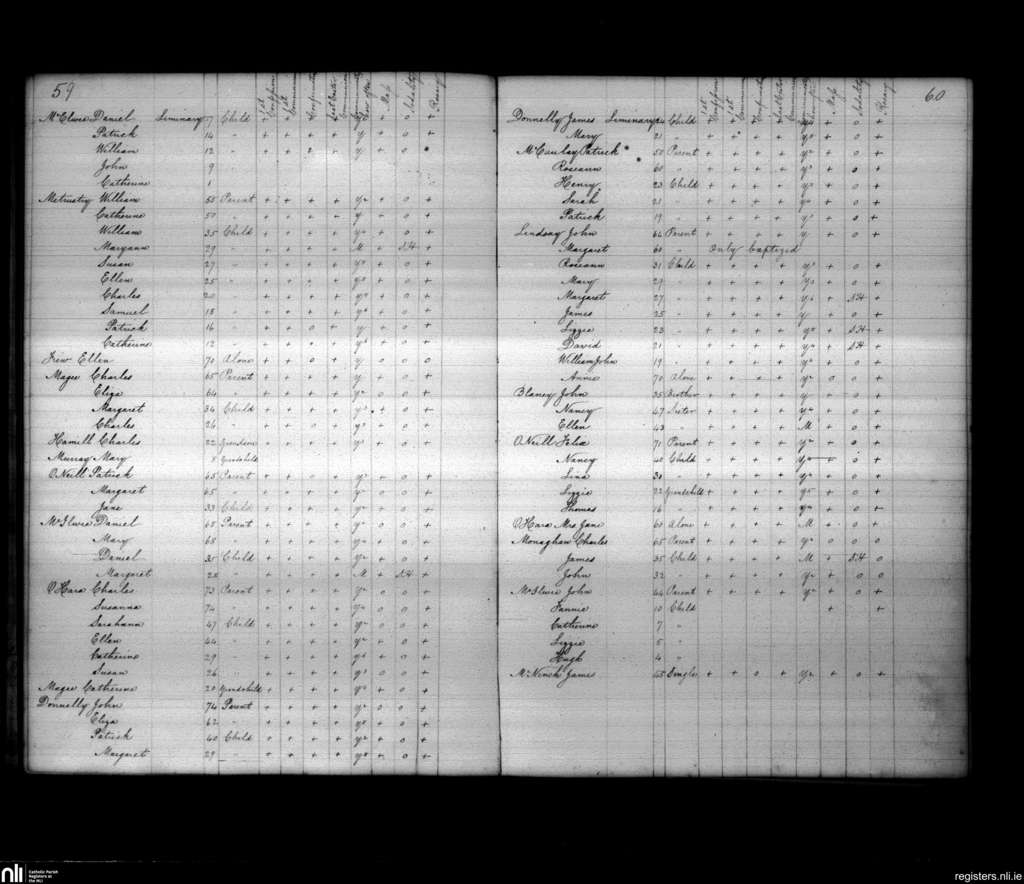 59
1st Confession 1st Communion Confirmation Last Easter Communion Communion how often Mass Sodality Rosary
McElwee Daniel Liminary 17 Child + + + + y + o +
Patrick 14 " + + + + y + o +
William 12 " + + o + y + o
John 9
Catherine 1
Metrustry William 55 Parent + + + + y + o +
Catherine 50 " + + + + y + o +
William 35 Child + + + + y + o +
Maryann 29 " + + + + M + S.H +
Susan 27 " + + + + y + o +
Ellen 25 " + + + + y + o +
Charles 20 " + + + + y + o +
Samuel 18 " + + + + y + o +
Patrick 16 " + + o + y + o +
Catherine 12 " + + + + y + o +
Frew Ellen 70 Alone + + o + y o o o
Magee Charles 65 Parent + + + + y + o +
Eliza 64 " + + + + y o o +
Margaret 34 Child + + + + y + o +
Charles 26 " + + o + y + o +
Hamill Charles 22 Grandson + + + + y + o +
Murray Mary 8 Grandchild
O'Neill Patrick 65 Parent + + o + y + o +
Margaret 65 " + + + + y o o +
Jane 33 Child + + + + y o o +
McIlwee Daniel 65 Parent + + + + y o o +
Mary 68 " + + + + y + o +
Daniel 35 Child + + + + y + o +
Margaret 22 " + + + + M + S.H +
O'Hara Charles 73 Parent + + + + y o o +
Susanna 74 " + + + + y o o +
Sarahann 47 Child + + + + y o o +
Ellen 44 " + + + + y + o +
Catherine 29 " + + + + y + o +
Susan 26 " + + + + y o o +
Magee Catherine 20 Grandchild + + + + y + o +
Donnelly John 74 Parent + + + + y o o +
Eliza 62 " + + + + y o o +
Patrick 40 Child + + + + y + o +
Margaret 29 " + + + + y + o +
60
1st Confession 1st Communion Confirmation Last Easter Communion Communion how often Mass Sodality Rosary
Donnelly James Liminary 24 Child + + + + y + o +
Mary 21 " + + + + y + o +
McCaulay Patrick 50 Parent + + + + y + o +
Roseann 60 " + + + + y + o +
Henry 23 Child + + + + y + o +
Sarah 21 " + + + + y + o +
Patrick 19 " + + + + y + o +
Lindsay John 64 Parent + + + + y + o +
Margaret 60 " Only Baptized
Roseann 31 Child + + + + y + o +
Mary 29 " + + + + y + o +
Margaret 27 " + + + + y + S.H +
James 25 " + + + + y + o +
Lizzie 23 " + + + + y + S.H +
David 21 " + + + + y + S.H +
William John 19 " + + + + y + o +
Annie 70 Alone + + + + y o o +
Blaney John 35 Brother + + + + y + o +
Nancy 47 Sister + + + + y + o +
Ellen 43 " + + + + M + o +
O'Neill Felix 71 Parent + + + + y + o +
Nancy 40 Child + + + + y + o +
Lina 30 " + + + + y + o +
Lizzie 22 Grandchild + + + + y + o +
Thomas 16 " + + + + y + o +
O'Hara Mrs Jane 60 Alone + + + + M + o +
Monaghan Charles 65 Parent + + + + y o o o
James 35 Child + + + + M + S.H o
John 32 " + + + + y + o o
McIlwee John 44 Parent + + + + y + o +
Fannie 10 Child + +
Catherine 7 "
Lizzie 5 "
Hugh 4 "
McNinch James 45 Single + + o + y + o +
nli Catholic Parish Registers at the NLI
registers.nli.ie